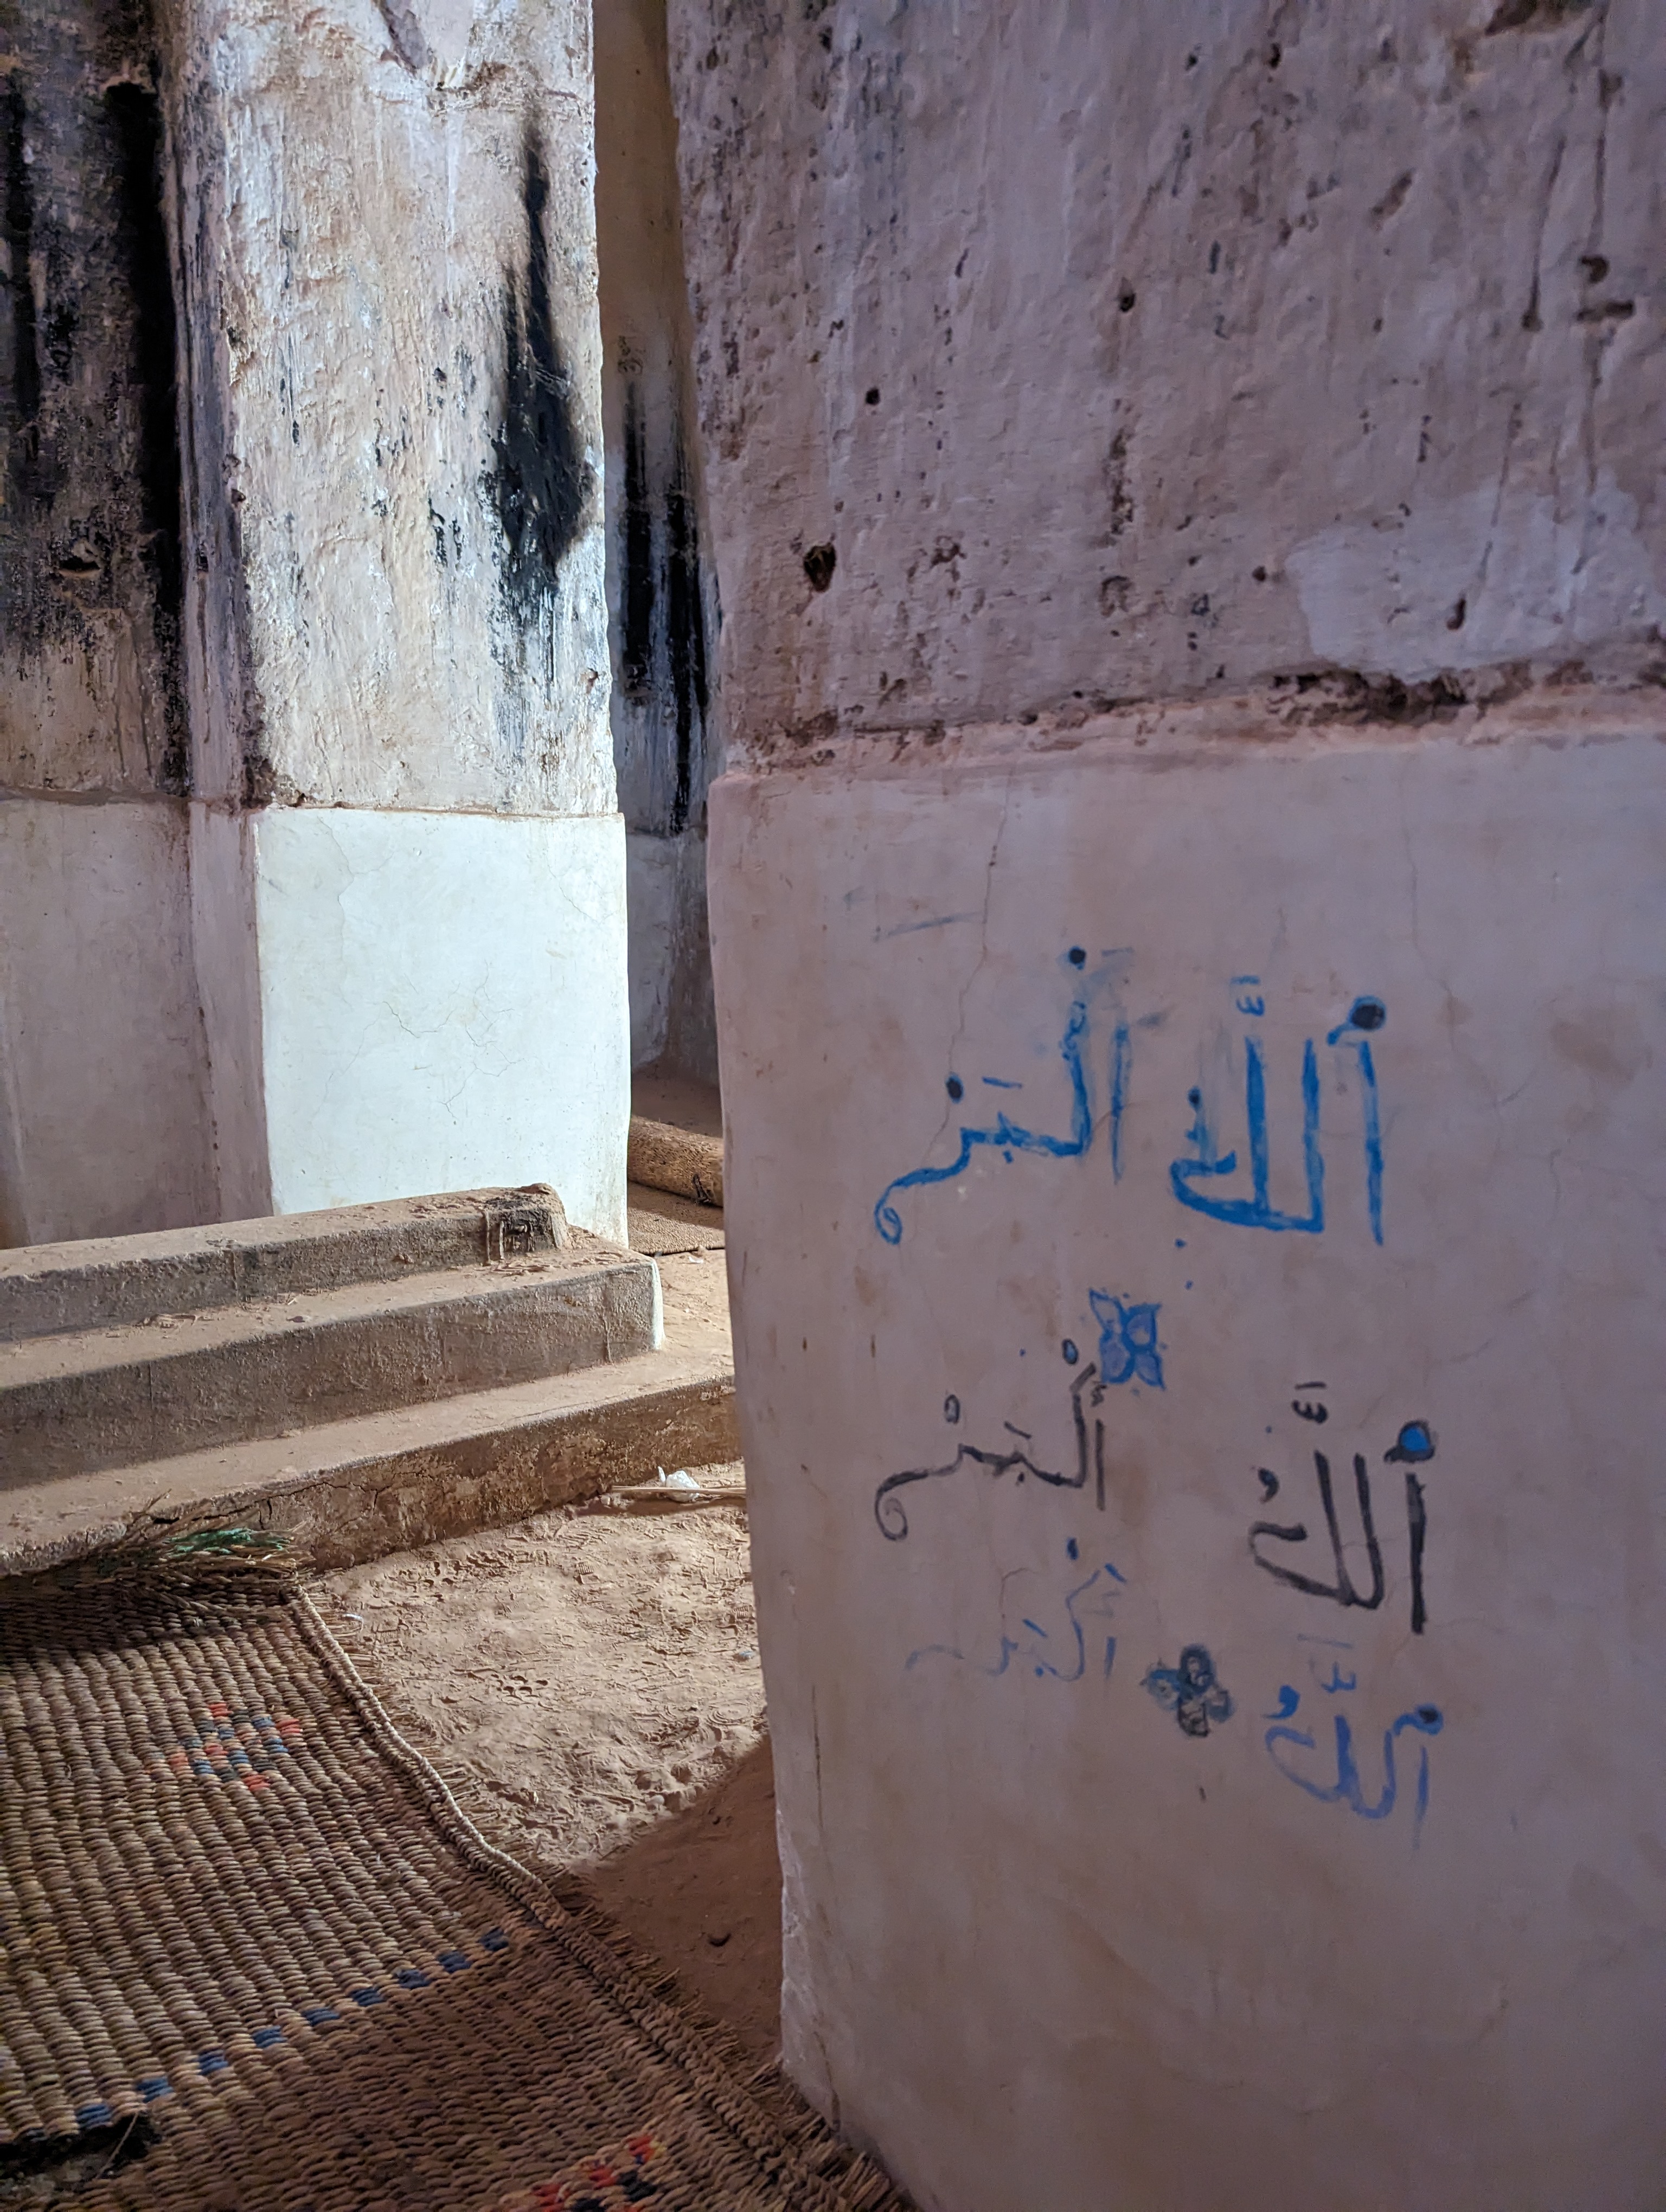 الله أكبر
الله أكبر
الله أكبر